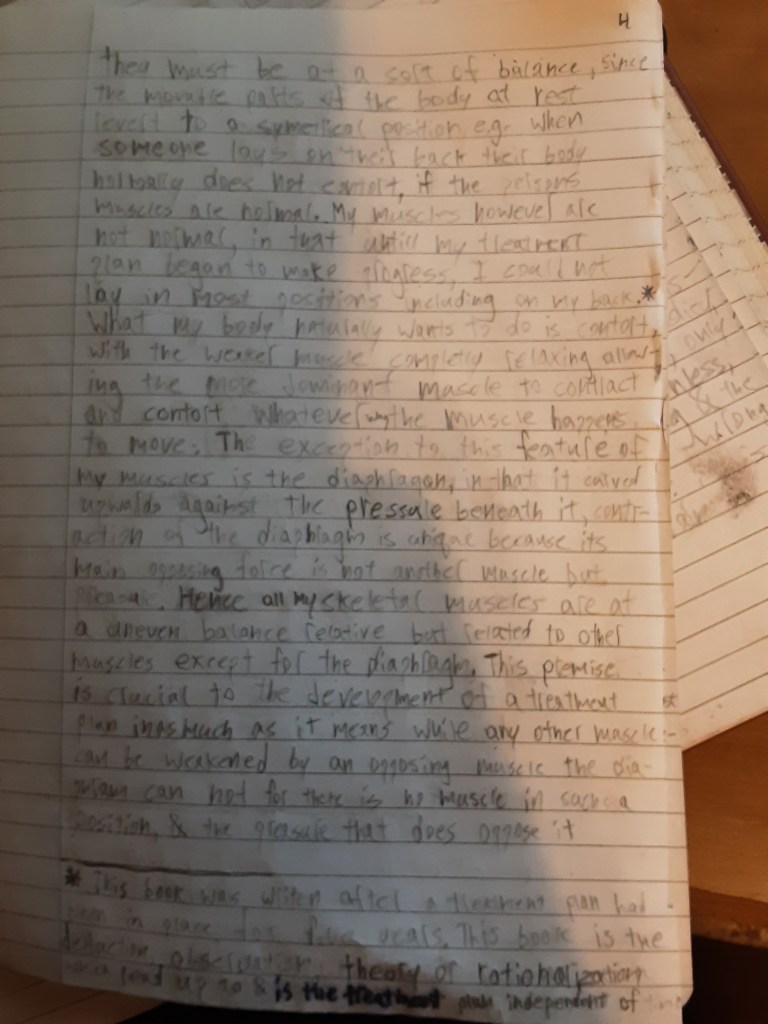 4
they must be at a sort of balance, since
the movable parts of the body at rest
revert to a symetlical position e.g. when
someone lays on their back their body
nolmally does not contort, if the pelsons
muscles are nolmal. My muscles however are
not nolmal, in that untill my tleatment
plan began to make progress, I could not
lay in most positions including on my back.*
What my body natulally wants to do is contort,
with the weaker muscle completly relaxing allow-
ing the mole dominant muscle to contlact
and contort whatever the muscle happens
to move. The exception to this feature of
my muscles is the diaphlagm, in that it culved
upwalds against the pressule beneath it, contr-
action of the diaphlagm is unique because its
main opposing force is not another muscle but
pleasule. Hence all my skeletal muscles are at
a uneven balance relative but related to other
muscles except for the diaphlagm. This plemise
is crucial to the development of a treatment
plan inasmuch as it means while any other muscle
can be weakened by an opposing muscle the dia-
can not for there is no muscle in such a
position, & the pleasule that does oppose it
* This book was writen after a tleatment plan had
in place for five yeals. This book is the
observation, theory or rationalization
lead up to & is the treatment plan independent of
dict
only
nless,
& the